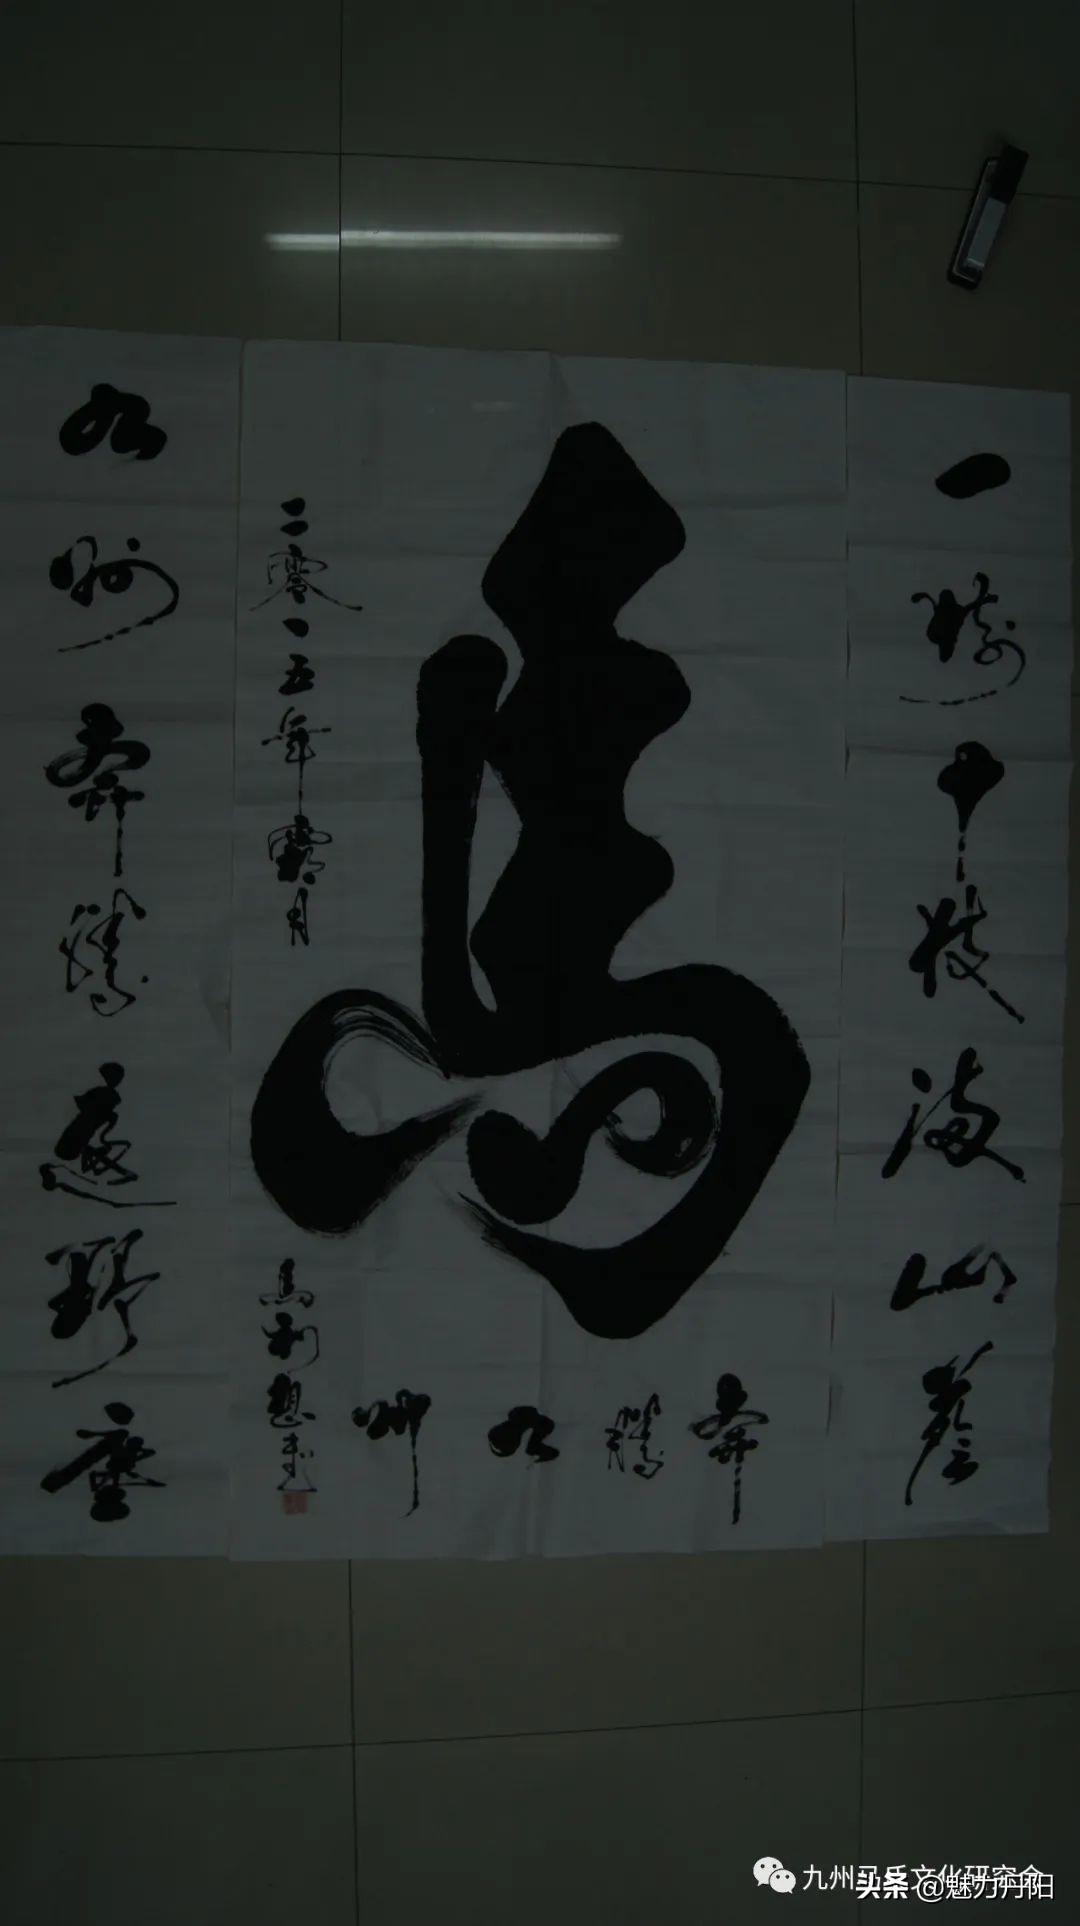 一樹千枝滿山蔭
馬
奔騰九州
二零一五年霜月
馬利想書
九州奔騰野塵
九州马氏文化研究会
头条 @魅力丹阳